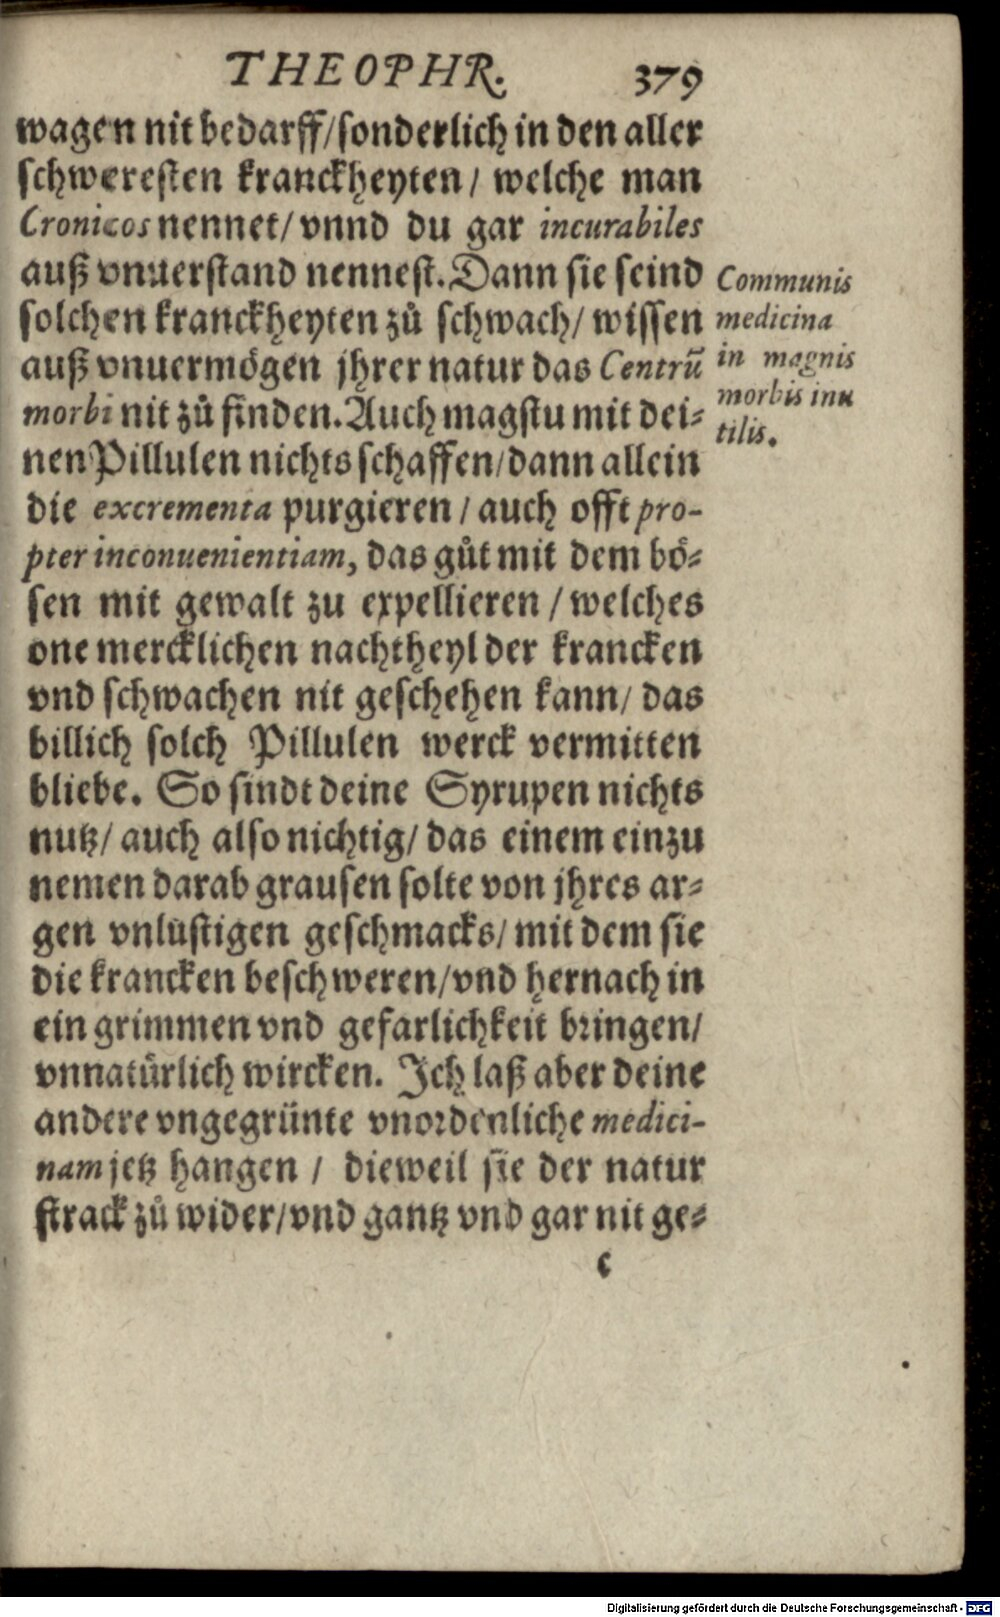 THEOPHR. 379
wagen nit bedarff/sonderlich in den aller
schweresten kranckheyten/ welche man
Cronicos nennet/ vnnd du gar incurabiles
auß vnuerstand nennest. Dann sie seind
solchen kranckheyten zů schwach/ wissen
auß vnuermögen jhrer natur das Centrũ
morbi nit zů finden. Auch magstu mit dei⸗
nen Pillulen nichts schaffen/dann allein
die excrementa purgieren / auch offt pro-
pter inconuenientiam, das gůt mit dem bö⸗
sen mit gewalt zu expellieren / welches
one mercklichen nachtheyl der krancken
vnd schwachen nit geschehen kann/ das
billich solch Pillulen werck vermitten
bliebe. So sindt deine Syrupen nichts
nutz/ auch also nichtig/ das einem einzu
nemen darab grausen solte von jhres ar⸗
gen vnlustigen geschmacks/ mit dem sie
die krancken beschweren/vnd hernach in
ein grimmen vnd gefarlichkeit bringen/
vnnatürlich wircken. Ich laß aber deine
andere vngegrünte vnordenliche medici-
nam jetz hangen / dieweil sie der natur
strack zů wider/vnd gantz vnd gar nit ge⸗
c
Communis
medicina
in magnis
morbis inu
tilis.
Digitalisierung gefördert durch die Deutsche Forschungsgemeinschaft - DFG